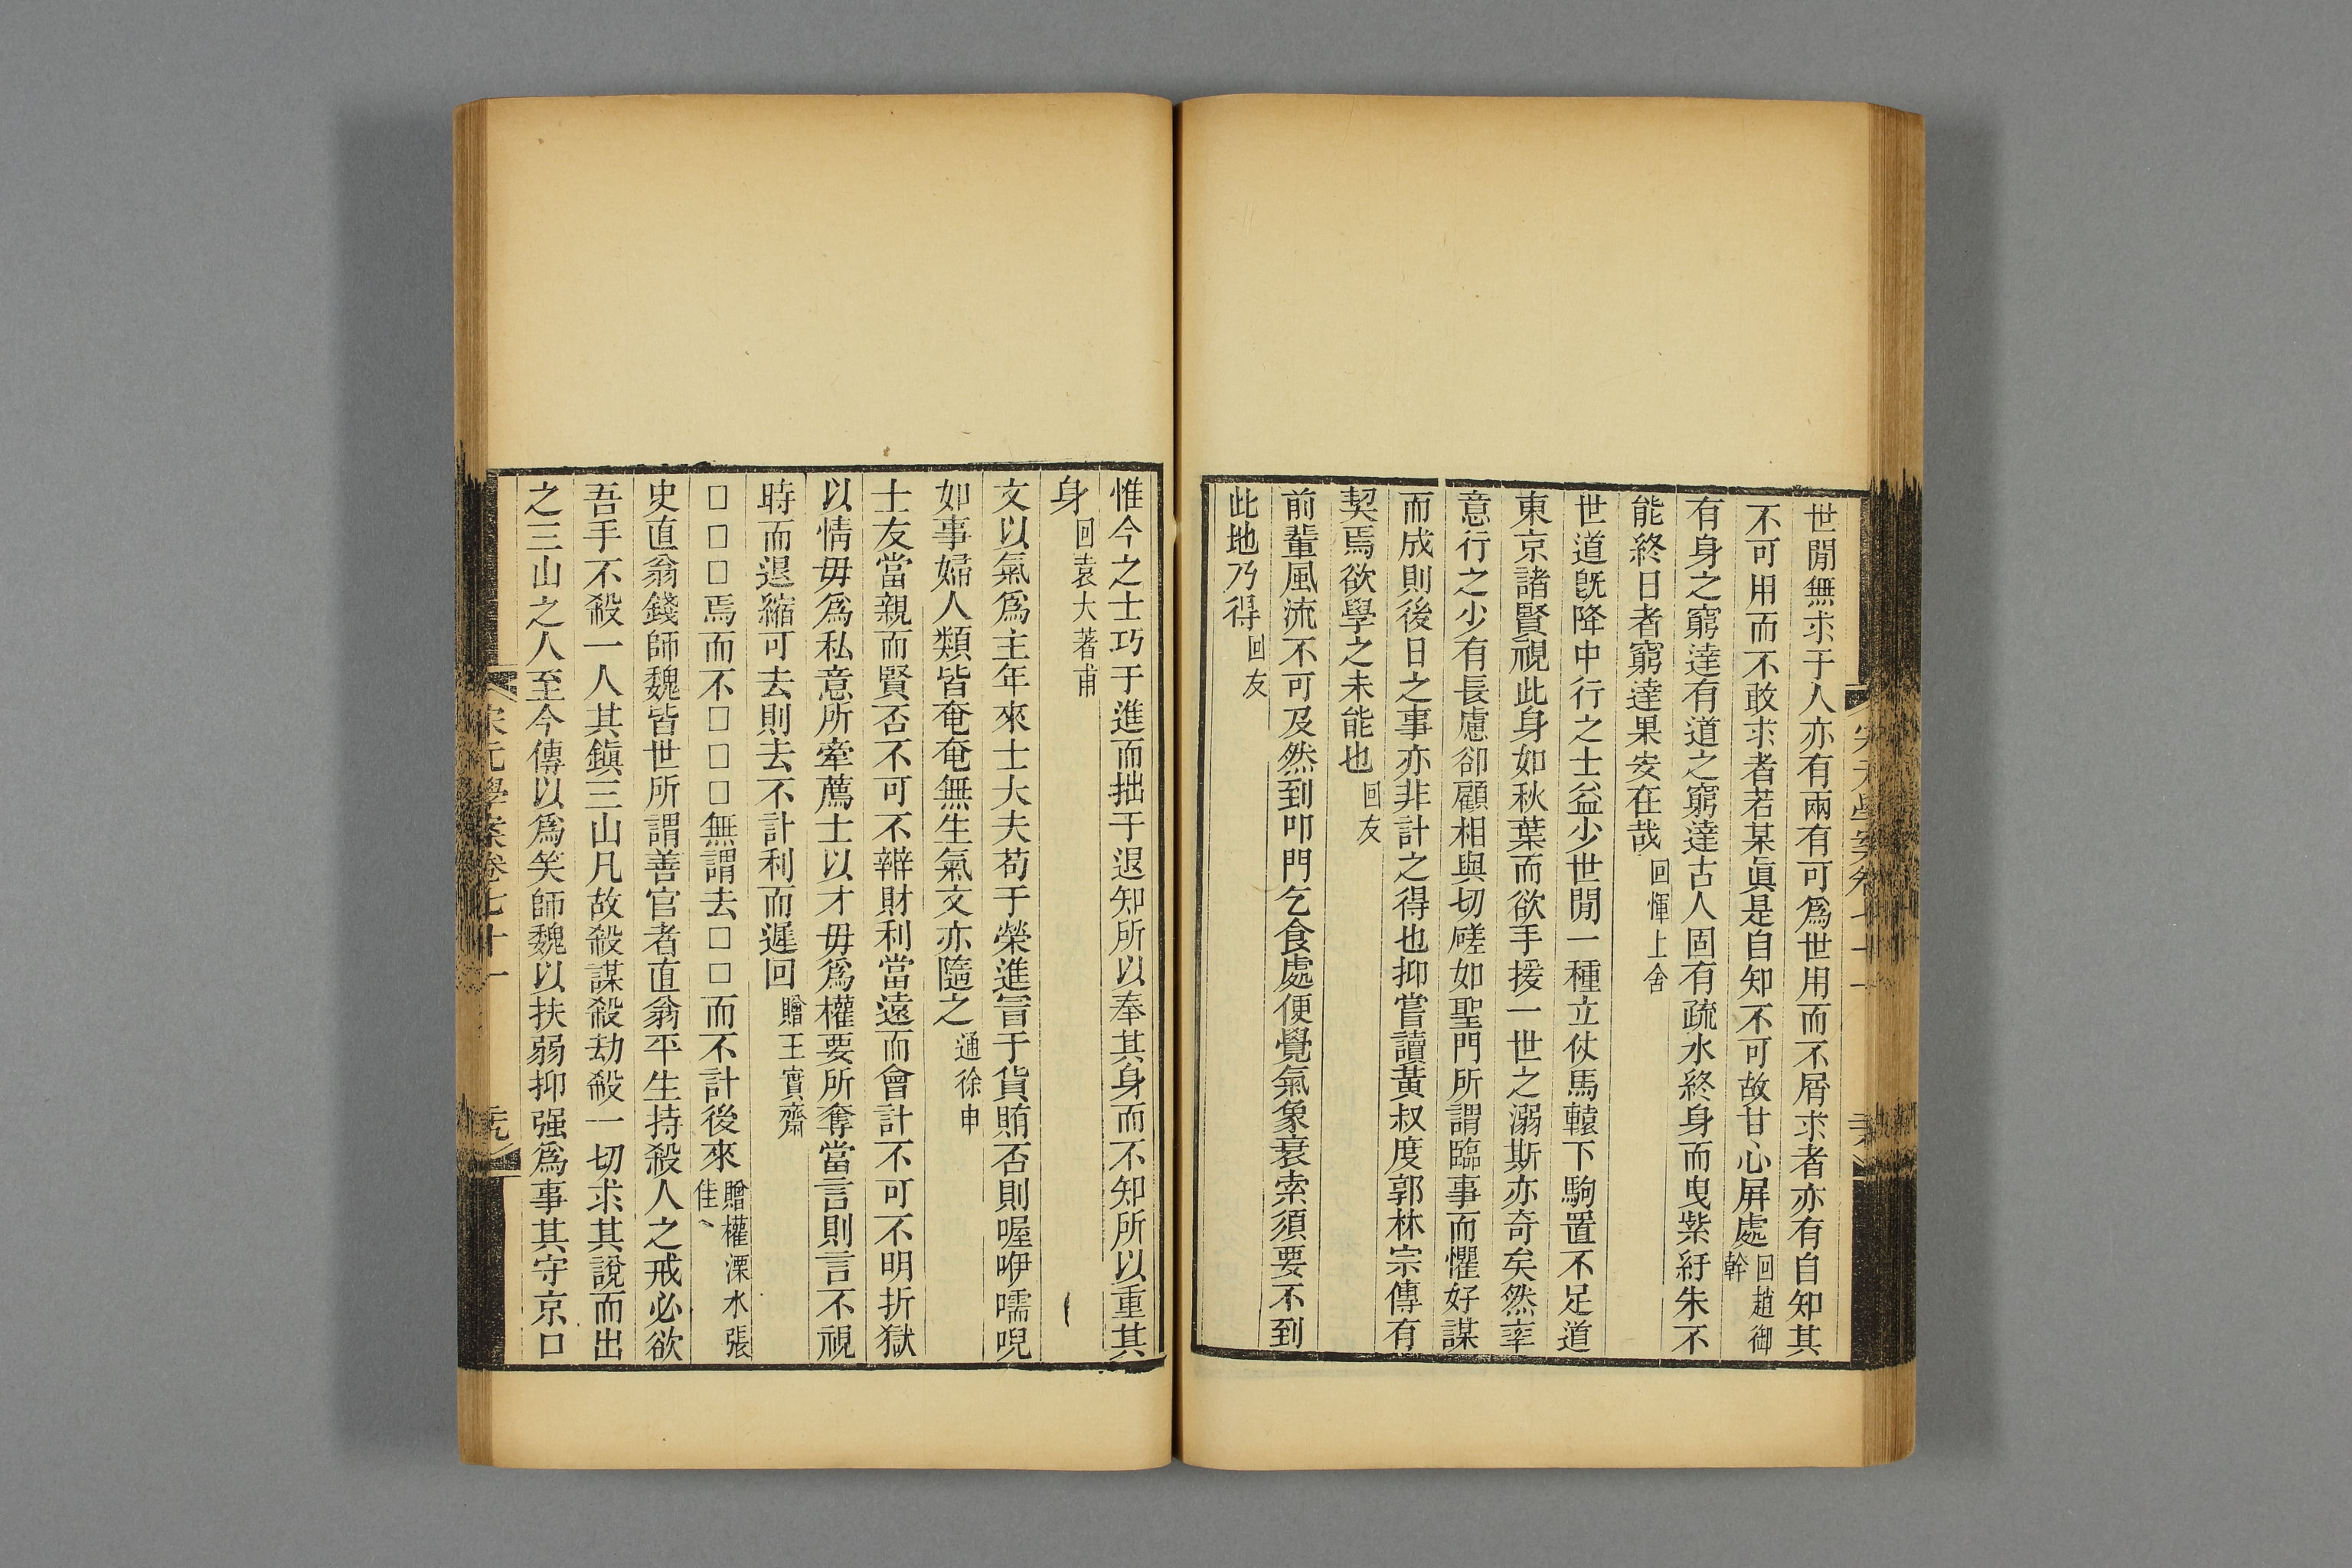 世閒無求于人亦有兩有可爲世用而不屑求者亦有自知其
不可用而不敢求者若某眞是自知不可故甘心屏處回趙御幹
有身之窮達有道之窮達古人固有疏水終身而曳紫紆朱不
能終日者窮達果安在哉回惲上舍
世道旣降中行之士益少世閒一種立仗馬轅下駒置不足道
東京諸賢視此身如秋葉而欲手援一世之溺斯亦奇矣然率
意行之少有長慮卻顧相與切磋如聖門所謂臨事而懼好謀
而成則後日之事亦非計之得也抑嘗讀黃叔度郭林宗傳有
契焉欲學之未能也回友
前輩風流不可及然到叩門乞食處便覺氣象衰索須要不到
此地乃得回友
惟今之士巧于進而拙于退知所以奉其身而不知所以重其
身回袁大著甫
文以氣爲主年來士大夫苟于榮進冒于貨賄否則喔咿嚅唲
如事婦人類皆奄奄無生氣文亦隨之通徐申
士友當親而賢否不可不辨財利當遠而會計不可不明折獄
以情毋爲私意所牽薦士以才毋爲權要所奪當言則言不視
時而退縮可去則去不計利而遲回贈王實齋
□□□焉而不□□□無謂去□□而不計後來贈權溧水張佳
史直翁錢師魏皆世所謂善官者直翁平生持殺人之戒必欲
吾手不殺一人其鎭三山凡故殺謀殺劫殺一切求其說而出
之三山之人至今傳以爲笑師魏以扶弱抑强爲事其守京口
宋元學案卷七十一